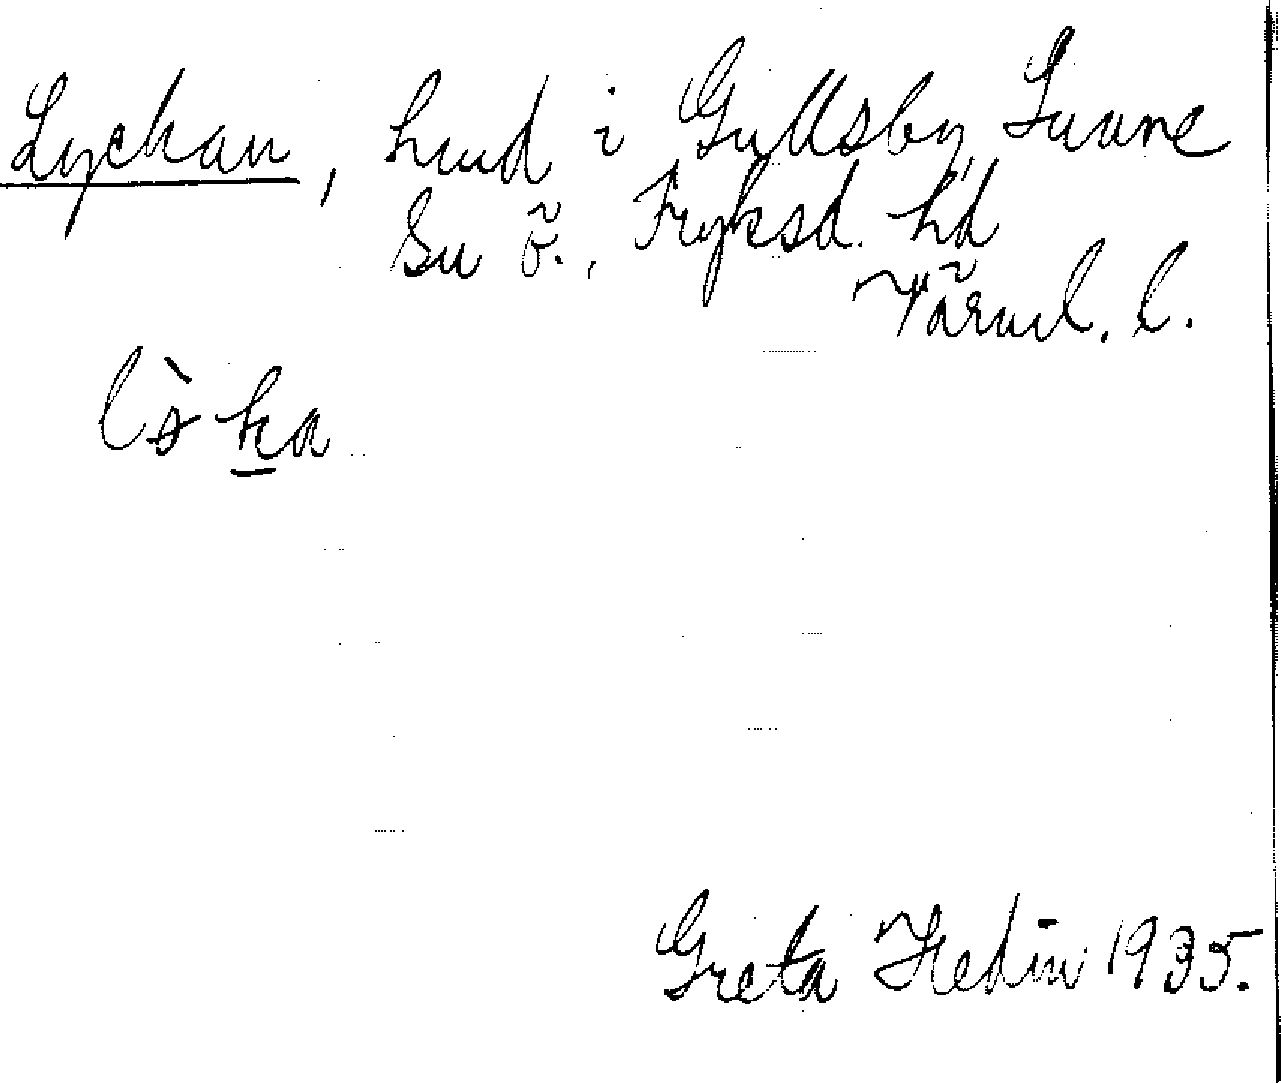 Lyckan, hmd i Gyllsby, Sunne
Su ö., Fryksd. hd
Värml. l.
Greta Hedin 1935.